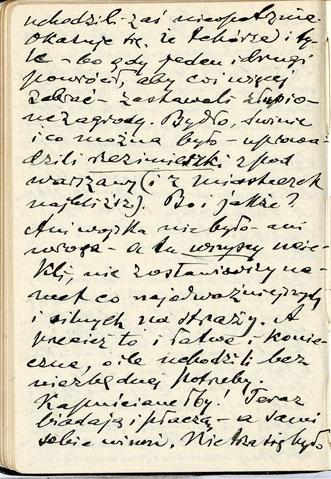 uchodzili zaś niepotrzebnie.
Okazuje się, że tchórze i ty-
le – bo gdy jeden i drugi
powrócił, aby coś więcej
zabrać – zastawali złupio-
ne zagrody. Bydło, świnie
i co można było – uprowa-
dzili rzezimieszki z pod
warszawy (i z miasteczek
najbliższ.). Bo i jakże?
Ani wojska nie było – ani
wroga – a tu wszyscy ucie-
kli, nie zostawiwszy na-
wet co najodważniejszych
i silnych na straży. A
przecież to i łatwe i koniecz-
ne, o ile uchodzili bez
niezbędnej potrzeby.
Kapuściane łby! Teraz
biadają i płaczą – a sami
sobie winni. Nie trza się było